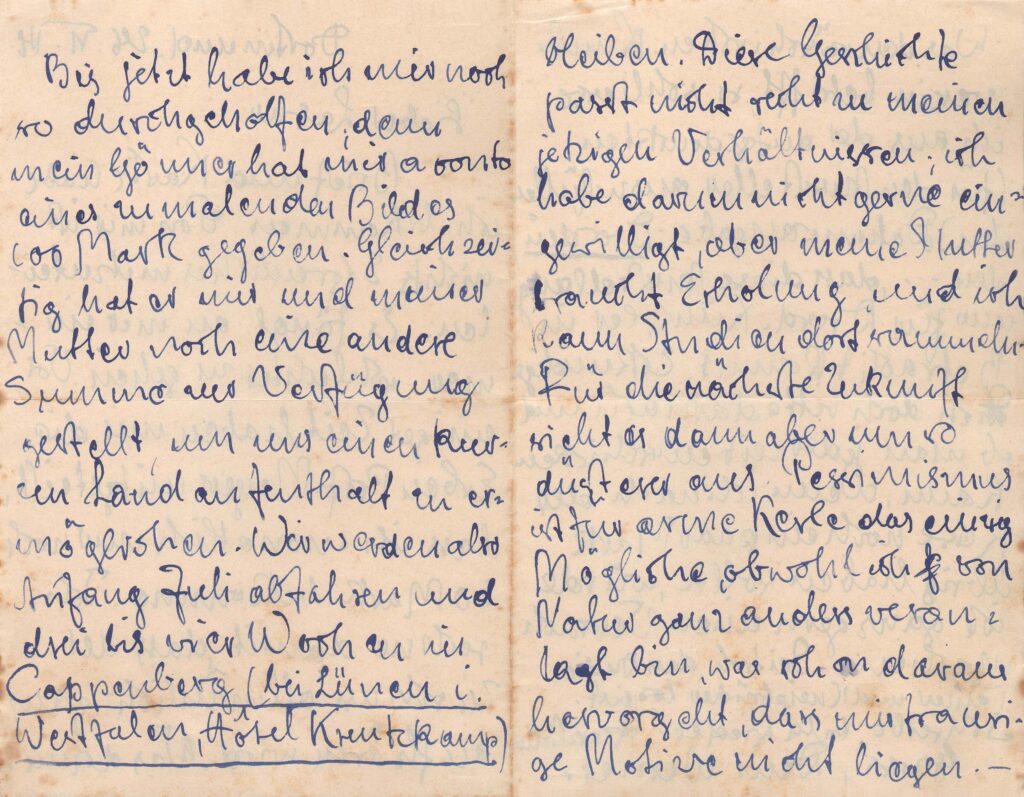 Bis jetzt habe ich mir noch
so durchgeholfen, denn
mein Gönner hat mir a conto
eines zu malenden Bildes
100 Mark gegeben. Gleichzei-
tig hat er mir und meiner
Mutter noch eine andere
Summe zur Verfügung
gestellt, um uns einen kur-
zen Landaufenthalt zu er-
möglichen. Wir werden also
Anfang Juli abfahren und
drei bis vier Wochen in
Cappenberg (bei Lünen i.
Westfalen, Hôtel Kreutzkamp)
bleiben. Diese Geschichte
passt nicht recht zu meinen
jetzigen Verhältnissen; ich
habe darum nicht gerne ein=
gewilligt, aber meine Mutter
braucht Erholung und ich
kann Studien dort sammeln.
Für die nächste Zukunft
sieht es dann aber um so
düsterer aus. Pessimismus
ist für arme Kerle das einzig
Mögliche, obwohl ich von
Natur ganz anders veran=
lagt bin, was schon daraus
hervorgeht, dass mir trauri-
ge Motive nicht liegen. —